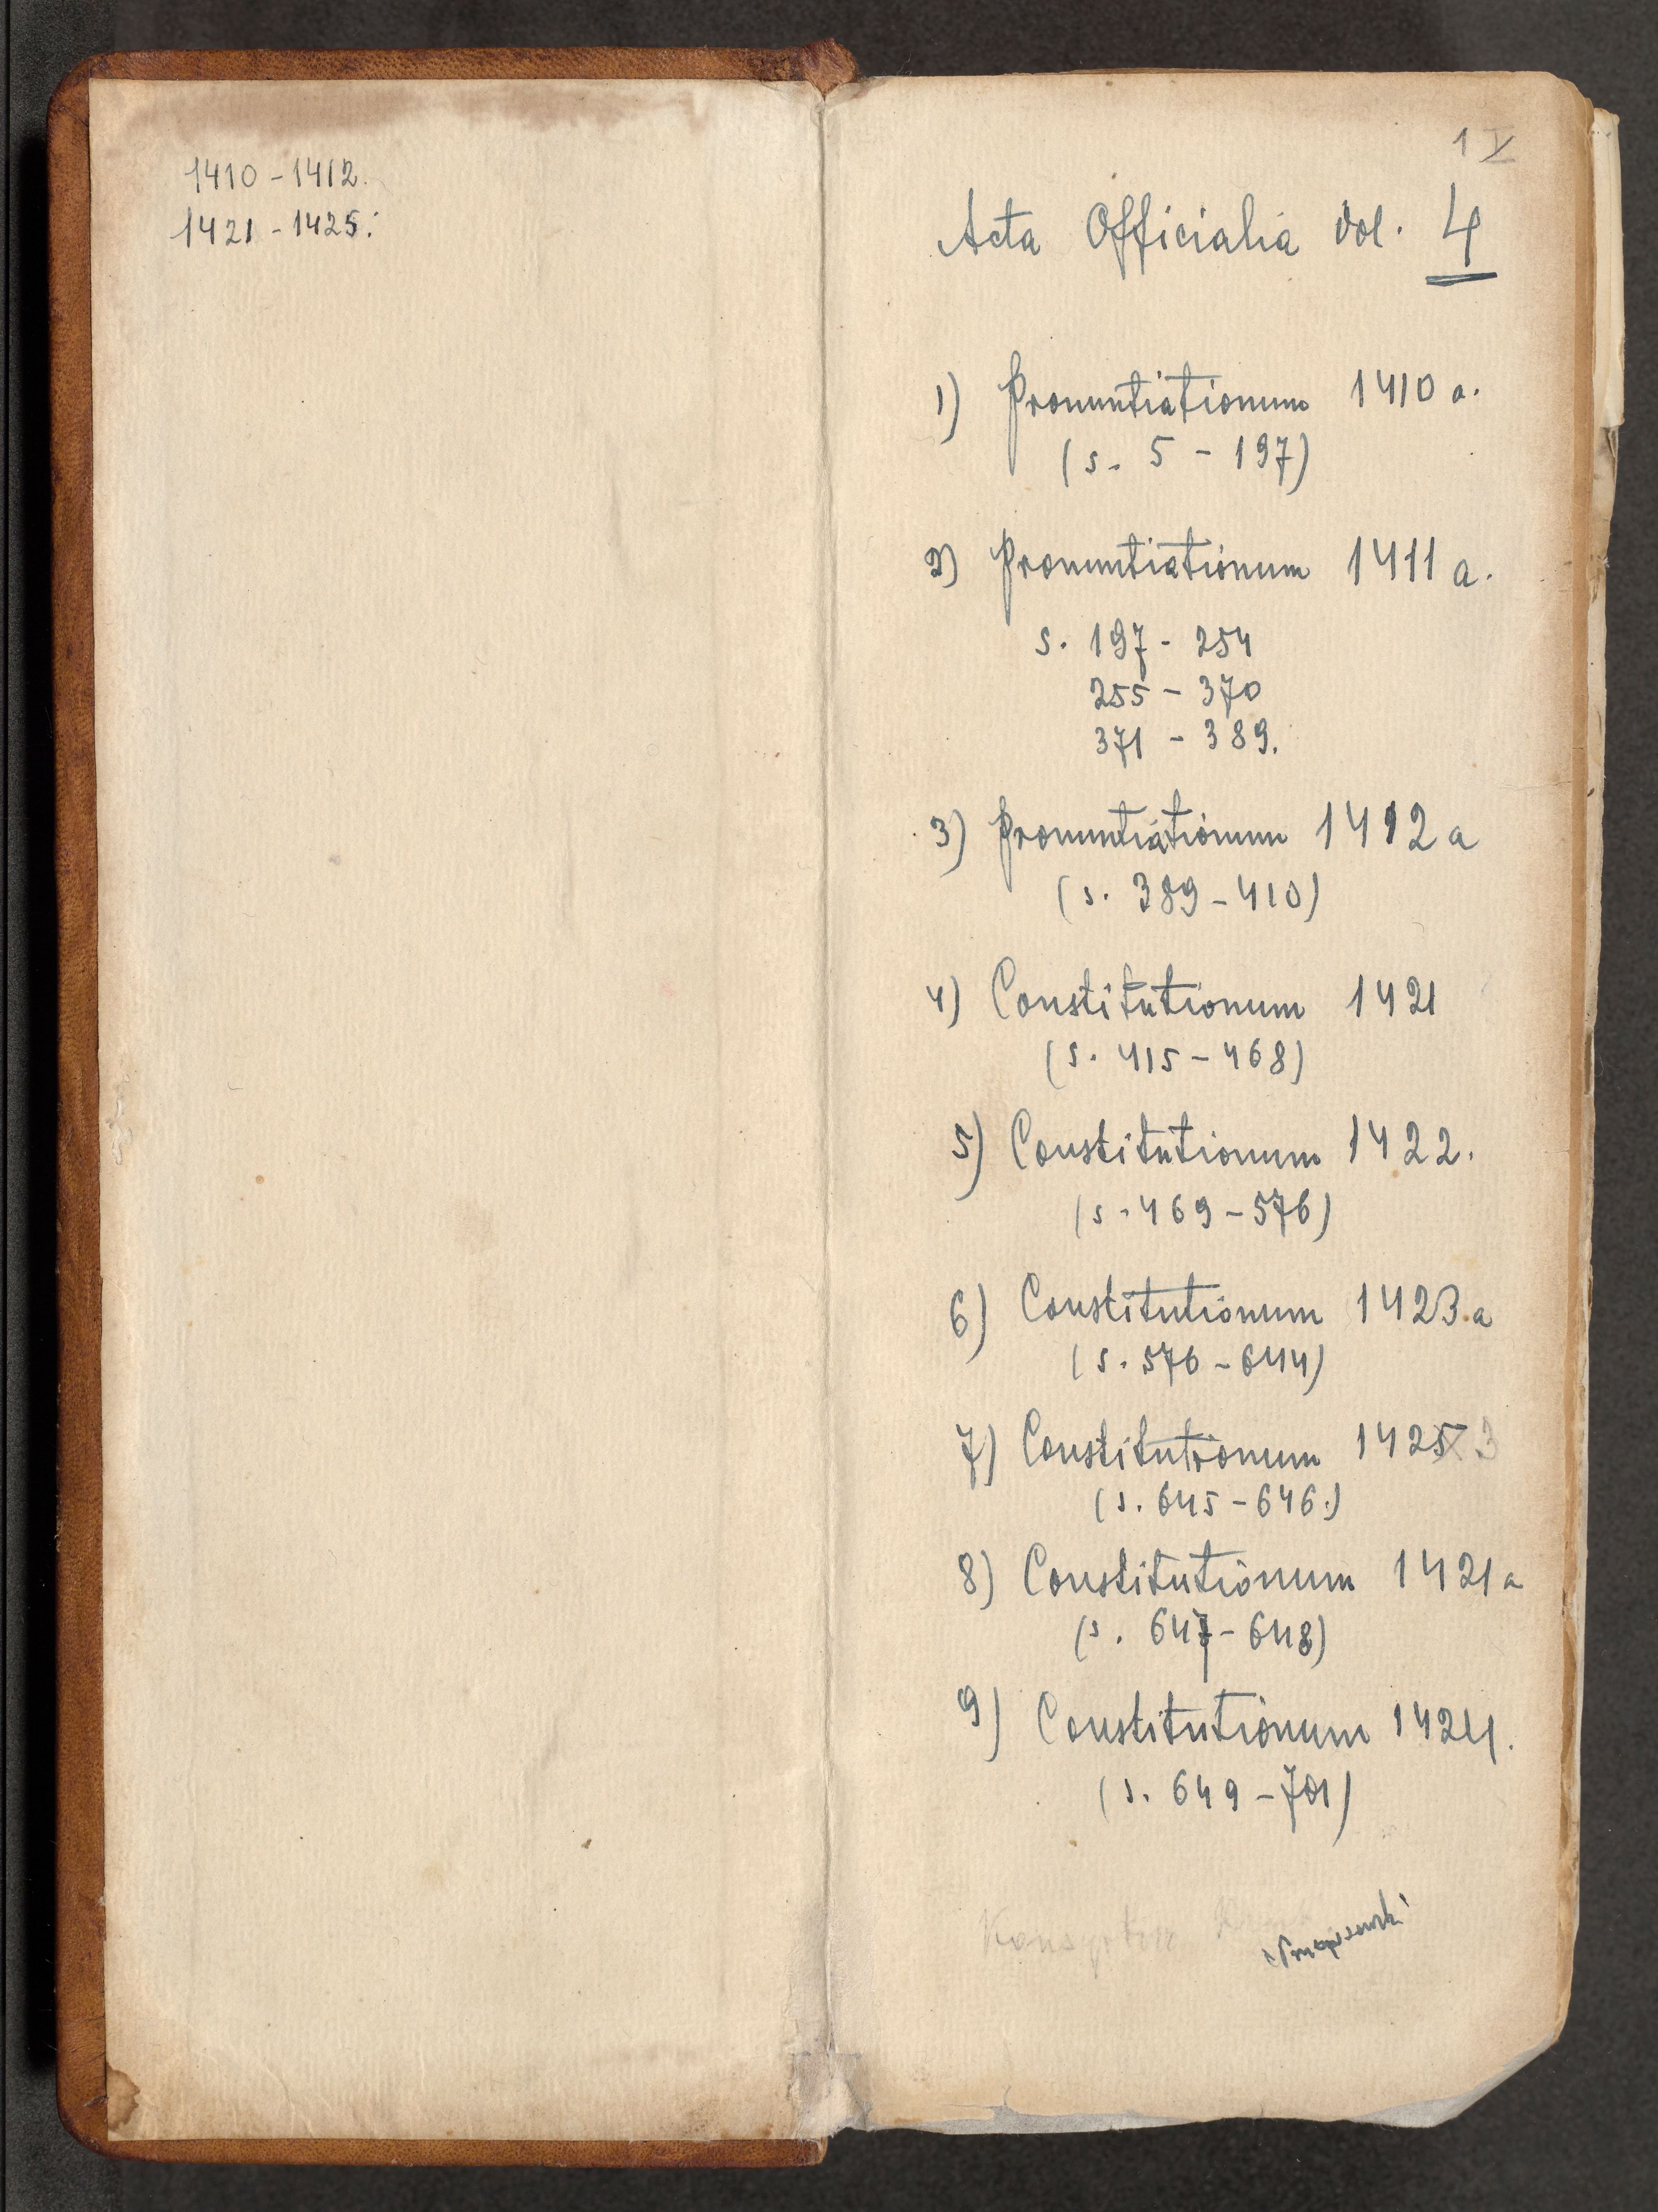 1410 - 1412.
1421 - 1425.
1
Acta Officialia vol. 4
1) Pronuntiationum 1410 a.
(s. 5 - 197)
2) Pronuntiationum 1411 a.
s. 197 - 254
255 - 370
371 - 389.
3) Pronuntiationum 1412 a
(s. 389 - 410)
4) Constitutionum 1421
(s. 415 - 468)
5) Constitutionum 1422.
(s. 469 - 576)
6) Constitutionum 1423 a
(s. 576 - 644)
7) Constitutionum 1425 3
(s. 645 - 646.)
8) Constitutionum 1421 a
(s. 647 - 648)
9) Constitutionum 1424.
(s. 649 - 701)